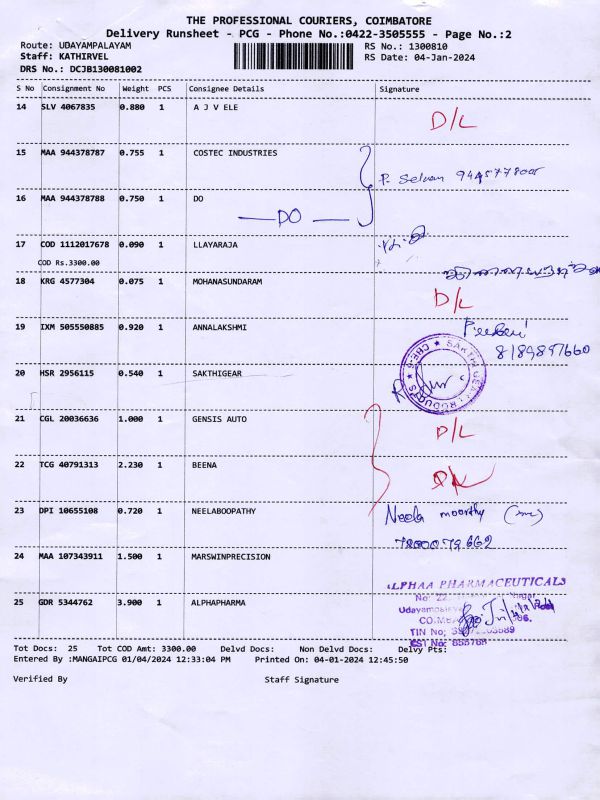 THE PROFESSIONAL COURIERS, COIMBATORE
Delivery Runsheet - PCG - Phone No.:0422-3505555 - Page No.:2
Route: UDAYAMPALAYAM RS No.: 1300810
Staff: KATHIRVEL RS Date: 04-Jan-2024
DRS No.: DCJB130081002
S No Consignment No Weight PCS Consignee Details Signature
14 SLV 4067835 0.880 1 A J V ELE
D/L
15 MAA 944378787 0.755 1 COSTEC INDUSTRIES
P. Selvam
16 MAA 944378788 0.750 1 DO
DO
17 COD 1112017678 0.090 1 LLAYARAJA
COD Rs.3300.00
18 KRG 4577304 0.075 1 MOHANASUNDARAM
D/L
19 IXM 505550885 0.920 1 ANNALAKSHMI
8189897660
20 HSR 2956115 0.540 1 SAKTHIGEAR
SAKTHI GEAR PRODUCTS CBE-6
21 CGL 20036636 1.000 1 GENSIS AUTO
D/L
22 TCG 40791313 2.230 1 BEENA
23 DPI 10655108 0.720 1 NEELABOOPATHY
Neela moorthy
24 MAA 107343911 1.500 1 MARSWINPRECISION
ALPHAA PHARMACEUTICALS
No: 22
25 GDR 5344762 3.900 1 ALPHAPHARMA
TIN No;
CST No: 855785
Tot Docs: 25 Tot COD Amt: 3300.00 Delvd Docs: Non Delvd Docs: Delvy Pts:
Entered By :MANGAIPCG 01/04/2024 12:33:04 PM Printed On: 04-01-2024 12:45:50
Verified By Staff Signature